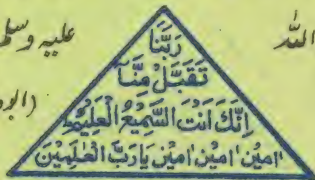 اللہ
علیہ وسلم
رَبَّنَا
تَقَبَّلْ مِنَّا
اِنَّكَ اَنْتَ السَّمِيْعُ الْعَلِيْمُ
اٰمِيْن اٰمِيْن اٰمِيْن يَارَبَّ الْعٰلَمِيْنَ